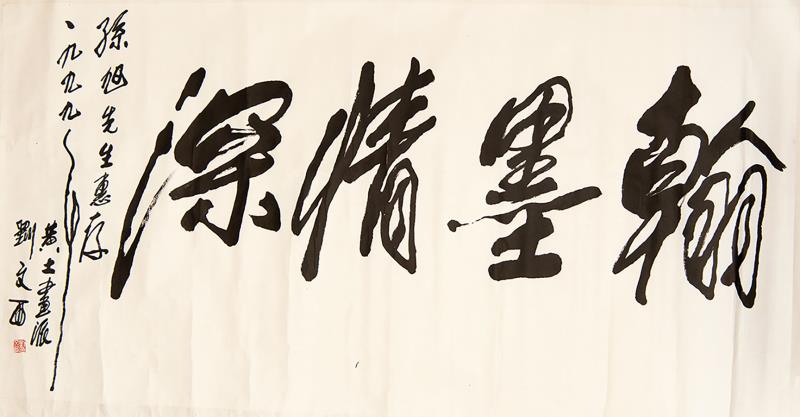 翰墨情深
孫旭先生惠存
一九九九年
黄土畫派
劉文西